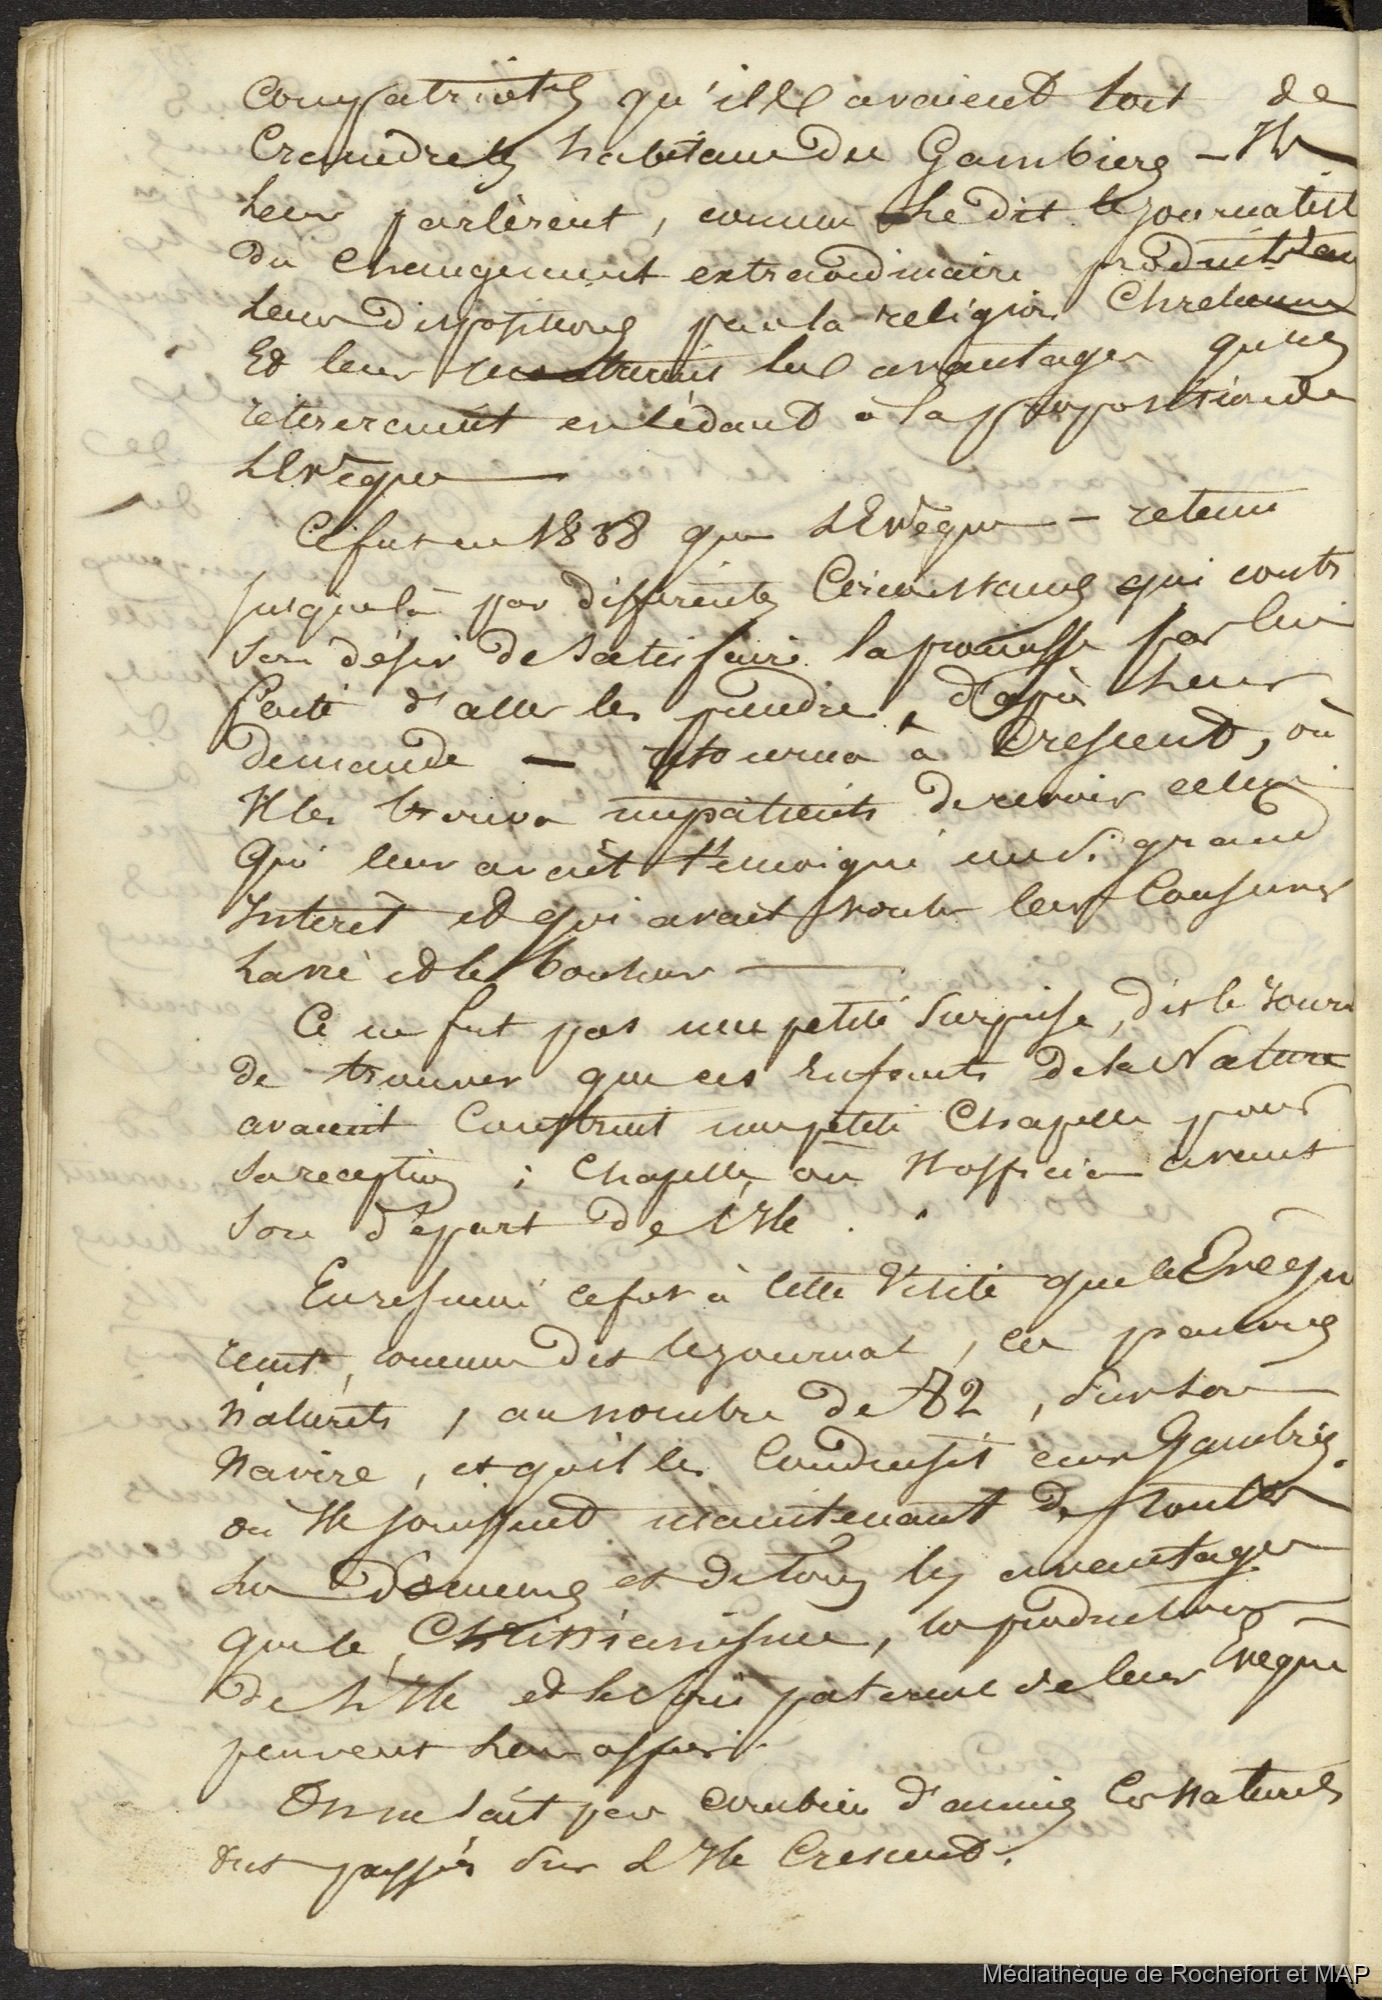 Compatriotes qu'ils avaient tort de
Craindre les habitans des Gambiers - Ils
leur parlèrent, comme le dit le journaliste
du changement extraordinaire produit dans
leurs dispositions par la religion Chretienne
Et leur les avantages qu'ils
retireraient en cédant à la proposition de
L'Evêque
Ce fut en 1838 que L'Evêque - retenu
jusque là par differentes Circonstances qui contr
son désir de satisfaire la promesse par lui
faite d'aller les prendre, d'après leur
demande — retourna à Crescent, où
Il les trouva impatients de revoir celui
Qui leur avait témoigné un si grand
Interet et qui avait voulu leur Conserver
la vie et le bonheur
Ce ne fut pas une petite Surprise, dit le Journ
de trouver que ces Enfants de la Nature
avaient Construit une petite Chapelle pour
sa reception ; Chapelle où Il officia avant
son départ de l'Ile .
En resumé ce fut à cette Visite que le Evêque
reçut, comme dit le journal, ces pauvres
Naturels, au nombre de 82, sur son
Navire, et qu'il les Conduisit aux Gambiers.
où Ils jouissent maintenant de toutes
les Douceurs et de tous les avantages
Que le Christianisme, la production
de l'Ile et le soin paternel de leur Evêque
peuvent leur offrir.
On ne sait pas combien d'années Ces Naturels
ont passées sur L'Ile Crescent.
Médiathèque de Rochefort et MAP